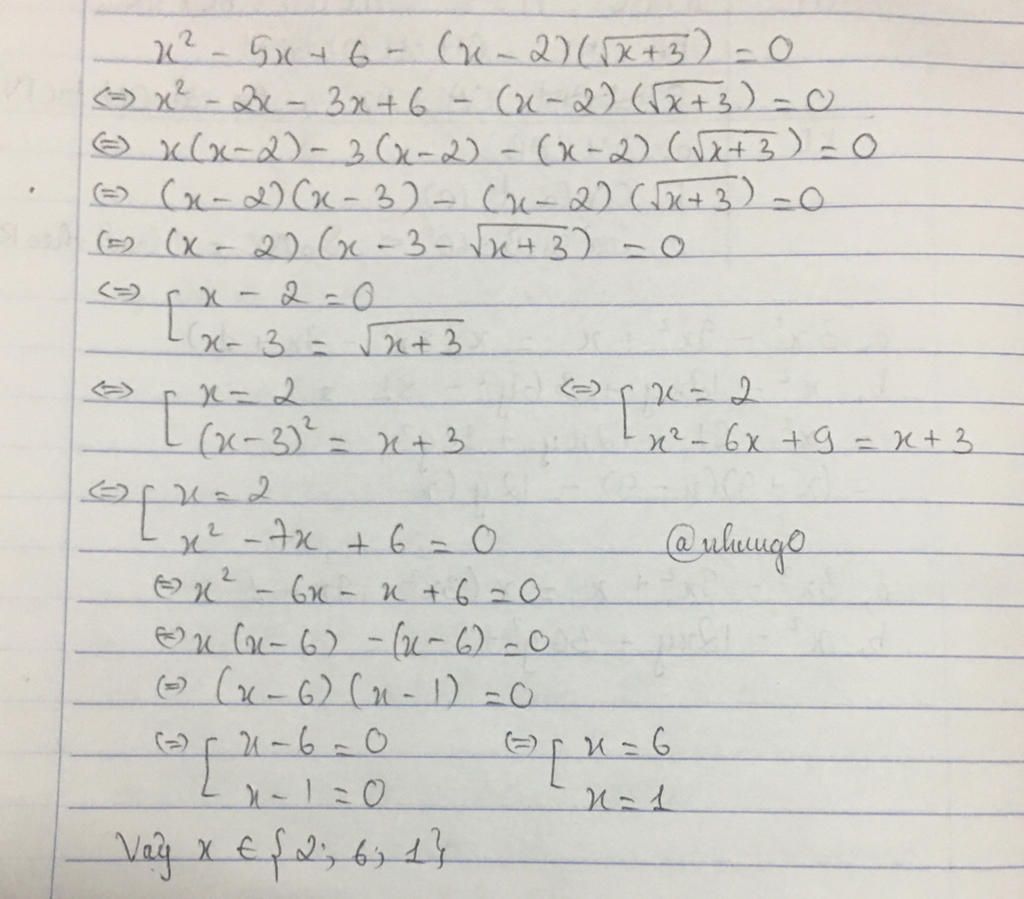 x² - 5x + 6 - (x - 2)(√(x+3)) = 0
⇔ x² - 2x - 3x + 6 - (x - 2)(√(x+3)) = 0
⇔ x(x-2) - 3(x-2) - (x-2)(√(x+3)) = 0
⇔ (x-2)(x-3) - (x-2)(√(x+3)) = 0
⇔ (x - 2)(x - 3 - √(x+3)) = 0
⇔ [ x - 2 = 0
x - 3 = √(x+3)
⇔ [ x = 2 ⇔ [ x = 2
(x-3)² = x + 3 x² - 6x + 9 = x + 3
⇔ [ x = 2
x² - 7x + 6 = 0 @nhung0
⇔ x² - 6x - x + 6 = 0
⇔ x(x-6) - (x-6) = 0
⇔ (x-6)(x-1) = 0
⇔ [ x - 6 = 0 ⇔ [ x = 6
x - 1 = 0 x = 1
Vậy x ∈ {2; 6; 1}